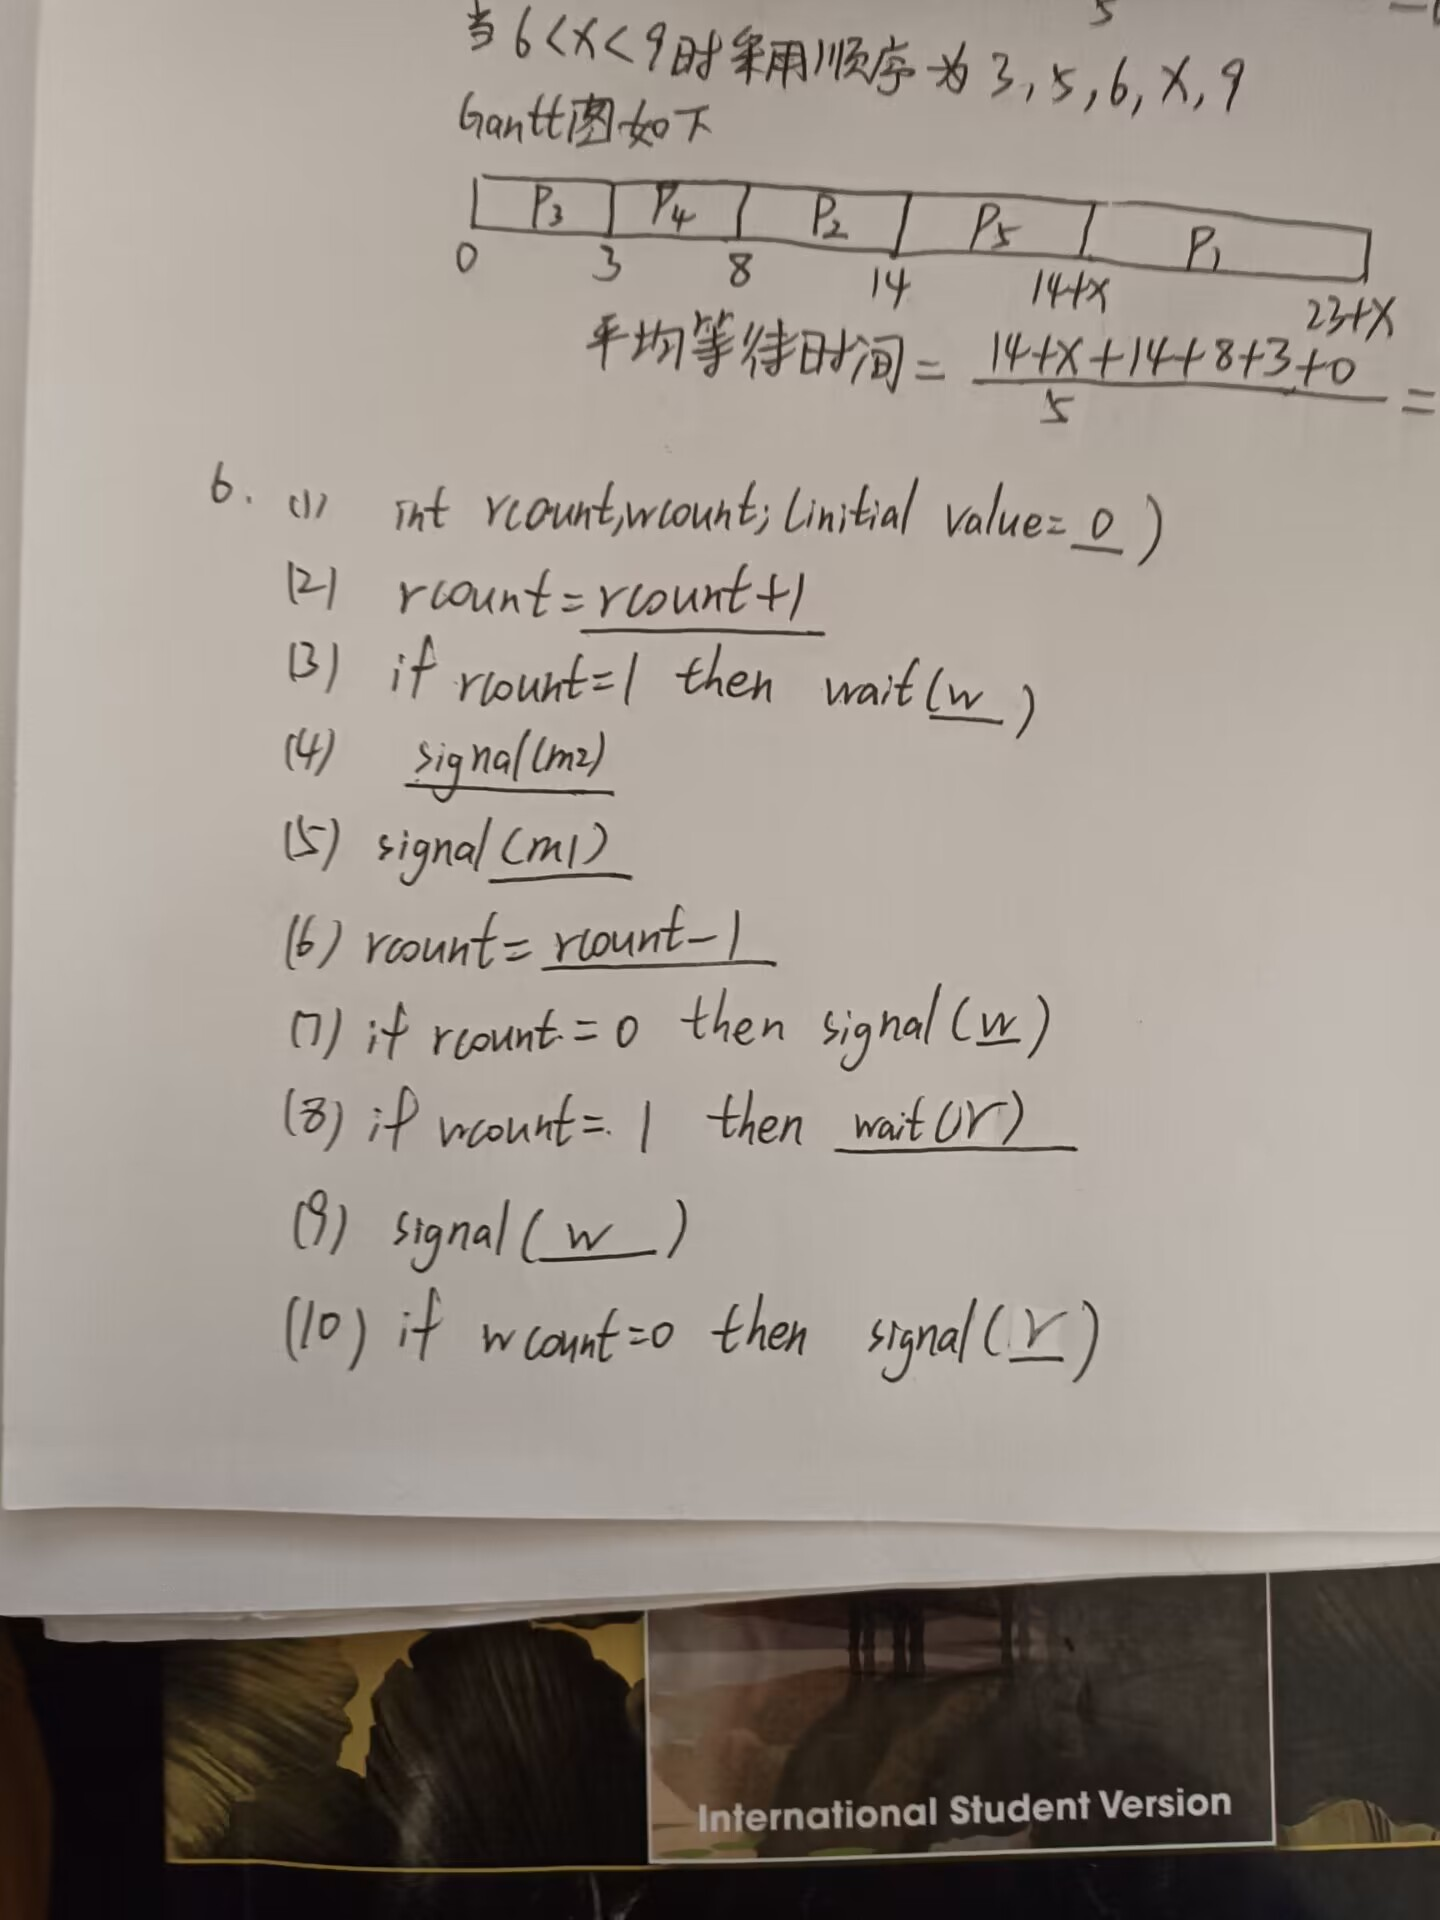 5
当6<x<9时采用顺序为3,5,6,x,9
Gantt图如下
P3 P4 P2 P5 P1
0 3 8 14 14+x 23+x
平均等待时间= 14+x+14+8+3+0 =
5
6. (1) int rcount,wcount; (initial value= 0 )
(2) rcount=rcount+1
(3) if rcount=1 then wait(w )
(4) signal(m2)
(5) signal(m1)
(6) rcount=rcount-1
(7) if rcount=0 then signal(w)
(8) if wcount=1 then wait(r)
(9) signal( w )
(10) if wcount=0 then signal(r)
International Student Version